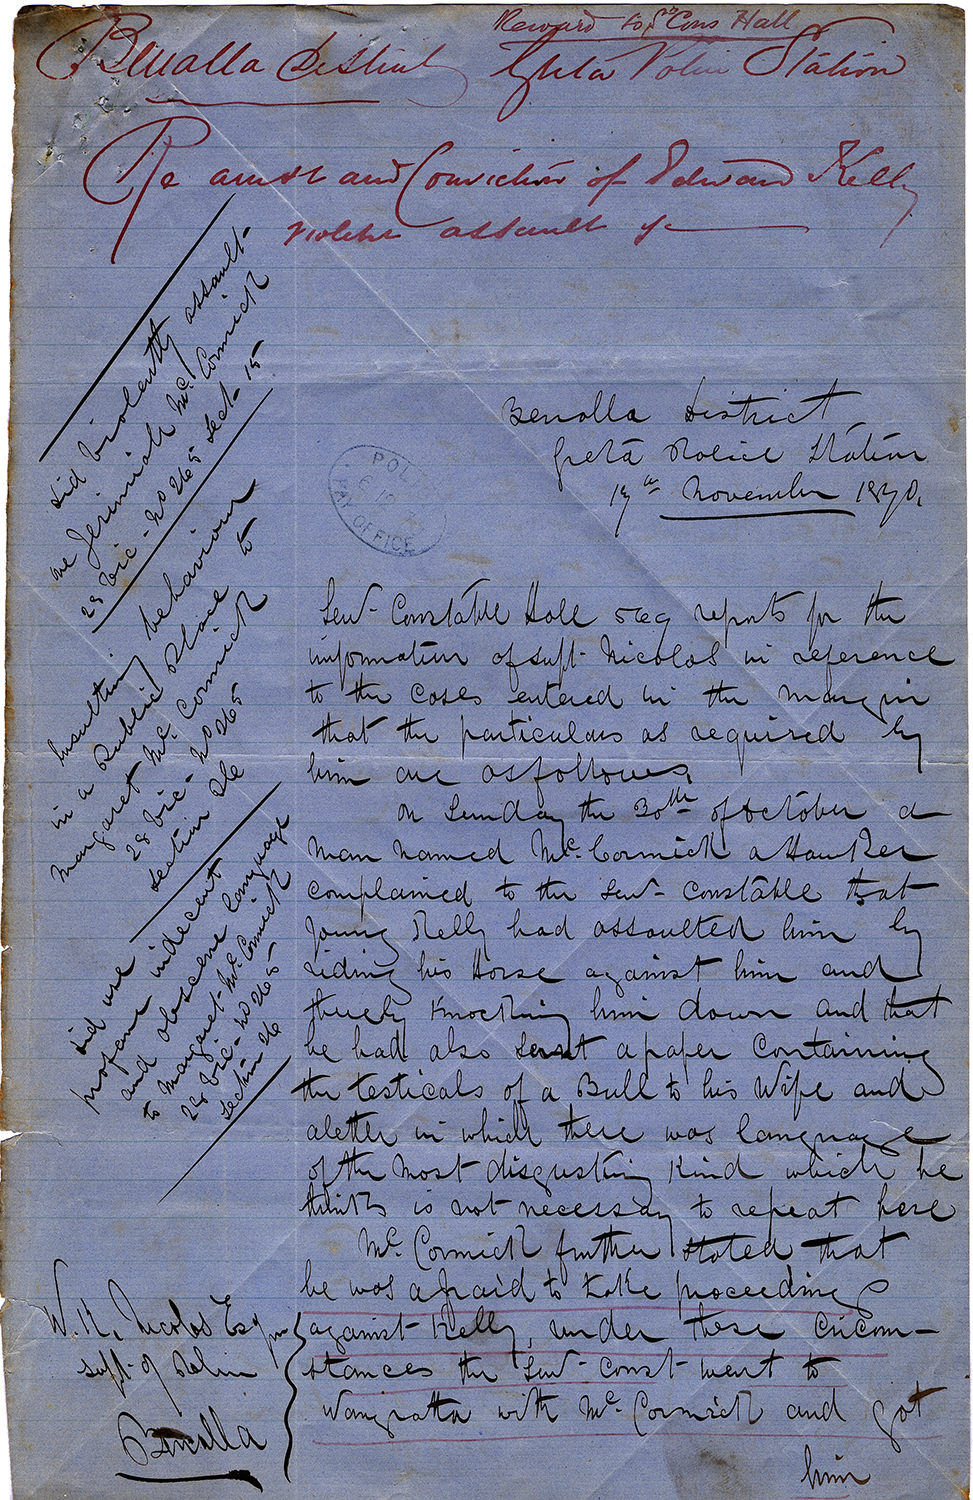 Reward to Sr Cons Hall
Benalla District Greta Police Station
Re arrest and Conviction of Edward Kelly
violent assault &c
Benalla District
Greta Police Station
19th November 1870.
POLI
PAY OFFICE
did violently assault
one Jerimiah Mc. Cormick
28 Vic - No 265 Sect - 15
Insulting behaviour
in a Public Place to
Margaret Mc. Cormick
28 Vic - No 265
Section 26
did use indecent
profane
and obscene language
to Margaret Mc. Cormick
28 Vic - No 265
Section 26
Senr Constable Hall reports for the
information of Supt. Nicolas in reference
to the cases entered in the margin
that the particulars as required by
him are as follows
On Sunday the 30th of October a
man named Mc. Cormick a Hawker
complained to the Senr Constable that
young Kelly had assaulted him by
riding his Horse against him and
thuely Knocking him down and that
he had also sent a paper Containing
the testicals of a Bull to his Wife and
a letter in which there was language
of the most disgusting Kind which he
thinks is not necessary to repeat here
Mc. Cormick further stated that
he was afraid to take proceedings
against Kelly, under these Circum-
stances the Senr Const went to
Wangratta with Mc. Cormick and got
him
W. H. Nicolas Esqr
Supt. of Police
Benalla